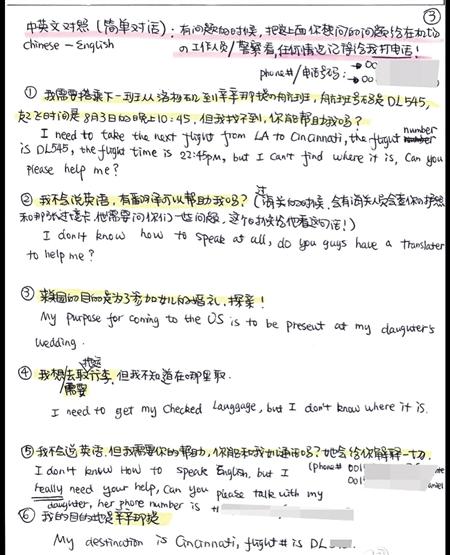 ③
中英文对照（简单对话）：有问题的时候，把以上面你想问的问题给在机场
Chinese - English 的工作人员/警察看，任何情况记得给我打电话！
phone#/电话号码：→ 00
→ 00
① 我需要搭乘下一班从洛杉矶到辛辛那提的航班，航班号码是DL545，
起飞时间是8月3日的晚上10:45，但我找不到，你能帮助我吗？
I need to take the next flight from LA to Cincinnati, the flight number
is DL545, the flight time is 22:45pm, but I can't find where it is, Can you
please help me?
② 我不会说英语，有翻译可以帮助我吗？（过海关的时候，会有海关人员会查你的护照
和那张过境卡，他需要问你们一些问题，这个时候给他看这句话！）
I don't know how to speak at all, do you guys have a translater
to help me?
③ 来美国的目的是为了参加女儿的婚礼，探亲！
My purpose for coming to the US is to be present at my daughter's
wedding.
④ 我想去取托运行李，但我不知道在哪里取.
需要
I need to get my checked Lauggage, but I don't know where it is.
⑤ 我不会说英语，但我需要你的帮助，你能和我女儿通话吗？她会给你解释一切.
I don't know How to speak English, but I (phone# 001
really need your help, Can you please talk with my 001
daughter, her phone number is
⑥ 我的目的地是辛辛那提
My destination is Cincinnati, flight # is DL